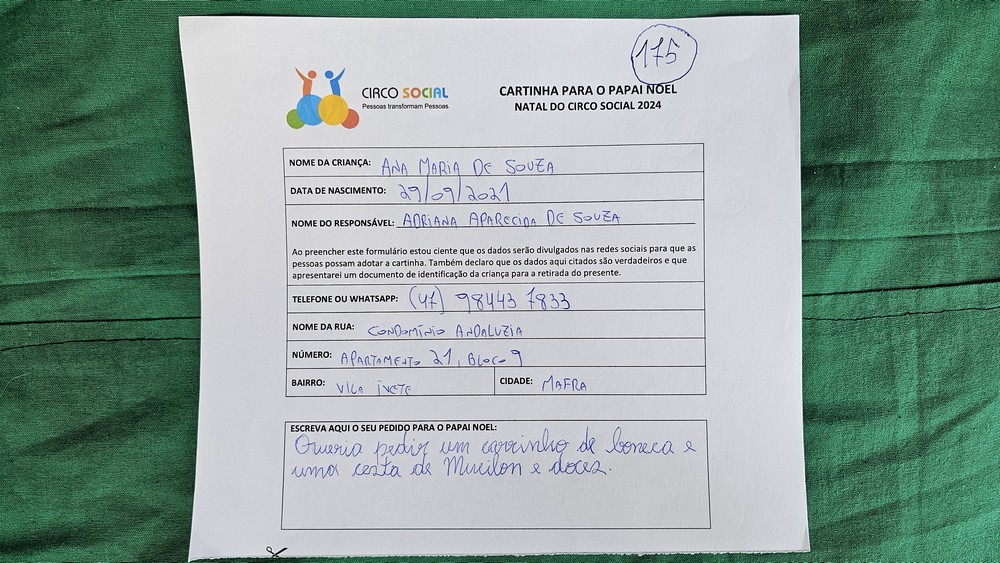 175
CIRCO SOCIAL
Pessoas transformam Pessoas
CARTINHA PARA O PAPAI NOEL
NATAL DO CIRCO SOCIAL 2024
NOME DA CRIANÇA: ANA MARIA DE SOUZA
DATA DE NASCIMENTO: 29/09/2021
NOME DO RESPONSÁVEL: ADRIANA APARECIDA DE SOUZA
Ao preencher este formulário estou ciente que os dados serão divulgados nas redes sociais para que as
pessoas possam adotar a cartinha. Também declaro que os dados aqui citados são verdadeiros e que
apresentarei um documento de identificação da criança para a retirada do presente.
TELEFONE OU WHATSAPP: (47) 98443 7833
NOME DA RUA: CONDOMÍNIO ANDALUZIA
NÚMERO: APARTAMENTO 21, BLOCO 9
BAIRRO: VILA IVETE CIDADE: MAFRA
ESCREVA AQUI O SEU PEDIDO PARA O PAPAI NOEL:
Queria pedir um carrinho de boneca e
uma cesta de Mucilon e doces.